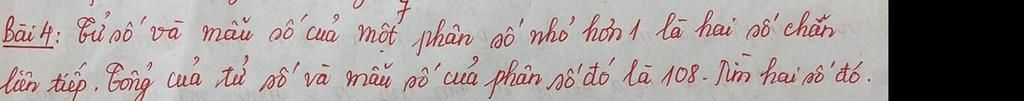 Bài 4: Tử số và mẫu số của một phân số nhỏ hơn 1 là hai số chẵn
liên tiếp. Tổng của tử số và mẫu số của phân số đó là 108. Tìm hai số đó.